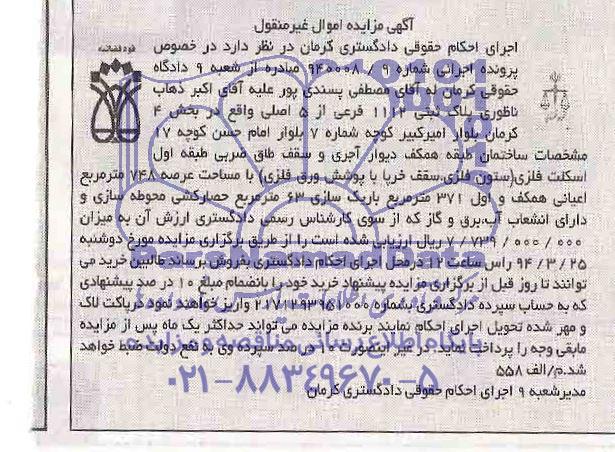 آگهی مزایده اموال غیرمنقول
قوه قضائیه
اجرای احکام حقوقی دادگستری کرمان در نظر دارد در خصوص
پرونده اجرائی شماره ۹/۹۴۰۰۰۸ صادره از شعبه ۹ دادگاه
حقوقی کرمان له آقای مصطفی پسندی پور علیه آقای اکبر ذهاب
ناظوری پلاک ثبتی ۱۱۱۲ فرعی از ۵ اصلی واقع در بخش ۴
کرمان بلوار امیرکبیر کوچه شماره ۷ بلوار امام حسن کوچه ۱۷
مشخصات ساختمان طبقه همکف دیوار آجری و سقف طاق ضربی طبقه اول
اسکلت فلزی(ستون فلزی،سقف خرپا با پوشش ورق فلزی) با مساحت عرصه ۷۴۸ مترمربع
اعیانی همکف و اول ۳۷۱ مترمربع پارک سازی ۶۳ مترمربع حصارکشی محوطه سازی و
دارای انشعاب آب،برق و گاز که از سوی کارشناس رسمی دادگستری ارزش آن به میزان
۷/۷۳۹/۰۰۰/۰۰۰ ریال ارزیابی شده است را از طریق برگزاری مزایده مورخ دوشنبه
۹۴/۳/۲۵ راس ساعت ۱۲ درمحل اجرای احکام دادگستری بفروش برساند طالبین خرید می
توانند تا روز قبل از برگزاری مزایده پیشنهاد خرید خود را بانضمام مبلغ ۱۰ در صد پیشنهادی
که به حساب سپرده دادگستری بشماره ۲۱۷۱۲۹۳۹۵۱۰۰۰ واریز خواهند نمود درپاکت لاک
و مهر شده تحویل اجرای احکام نمایند برنده مزایده می تواند حداکثر یک ماه پس از مزایده
مابقی وجه را پرداخت نماید. در غیر اینصورت ۱۰ در صد سپرده وی به نفع دولت ضبط خواهد
شد.م/الف ۵۵۸
مدیرشعبه ۹ اجرای احکام حقوقی دادگستری کرمان
پایگاه اطلاع رسانی مناقصه و مزایده
۰۲۱-۸۸۳۴۹۶۷۰-۵